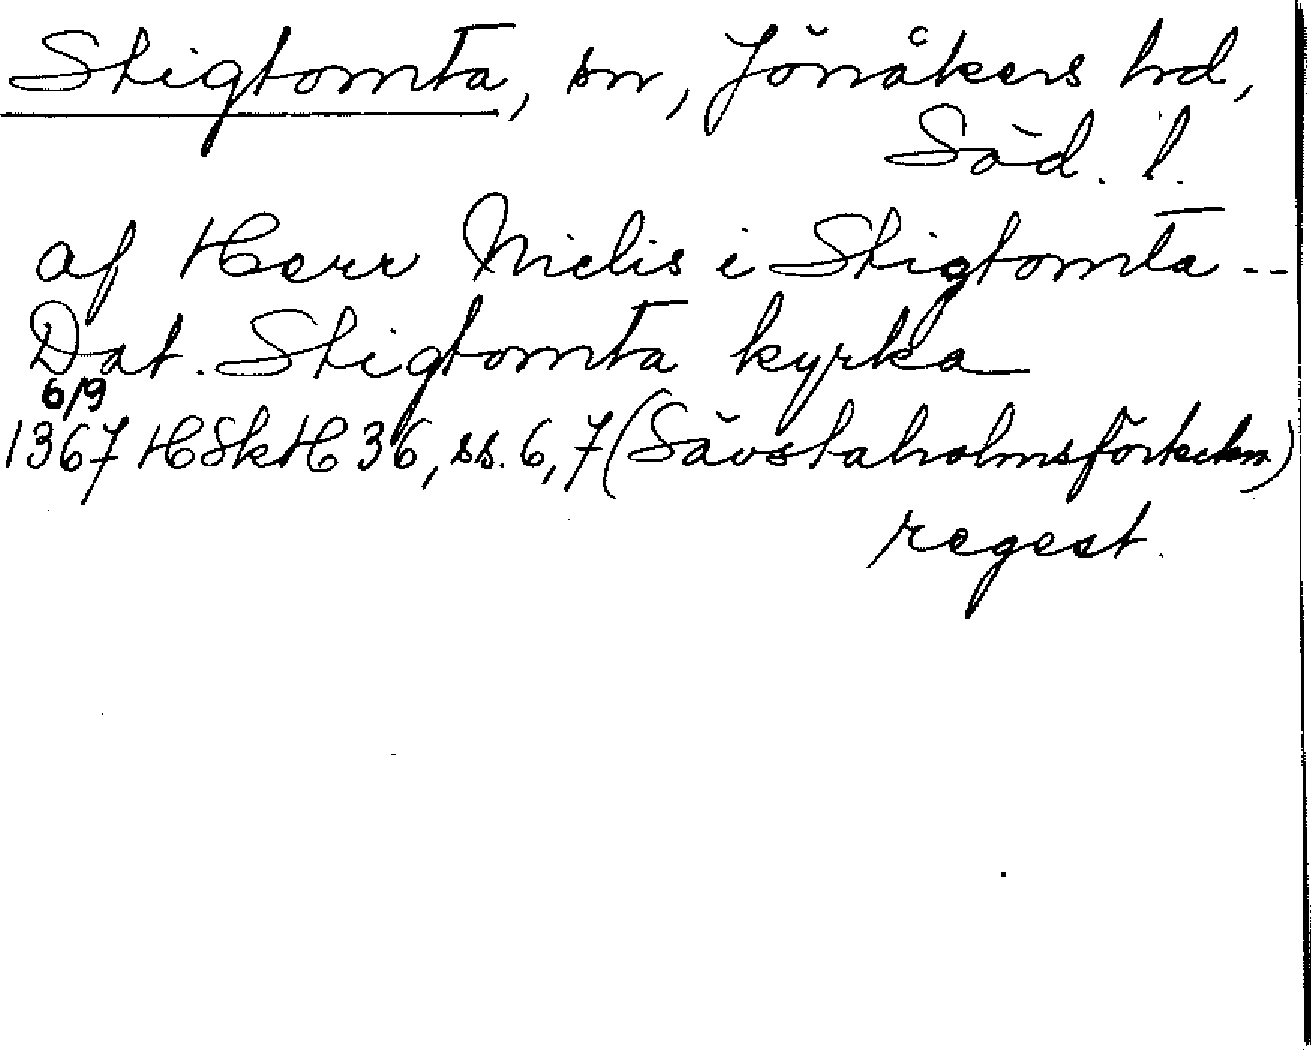 Stigtomta, sn, Jönåkers hd,
Söd. l.
af Herr Nielis i Stigtomta --
Dat. Stigtomta kyrka
6/9
1367 HSkH 36, ss. 6, 7 (Sävstaholmsförteckn.)
regest.